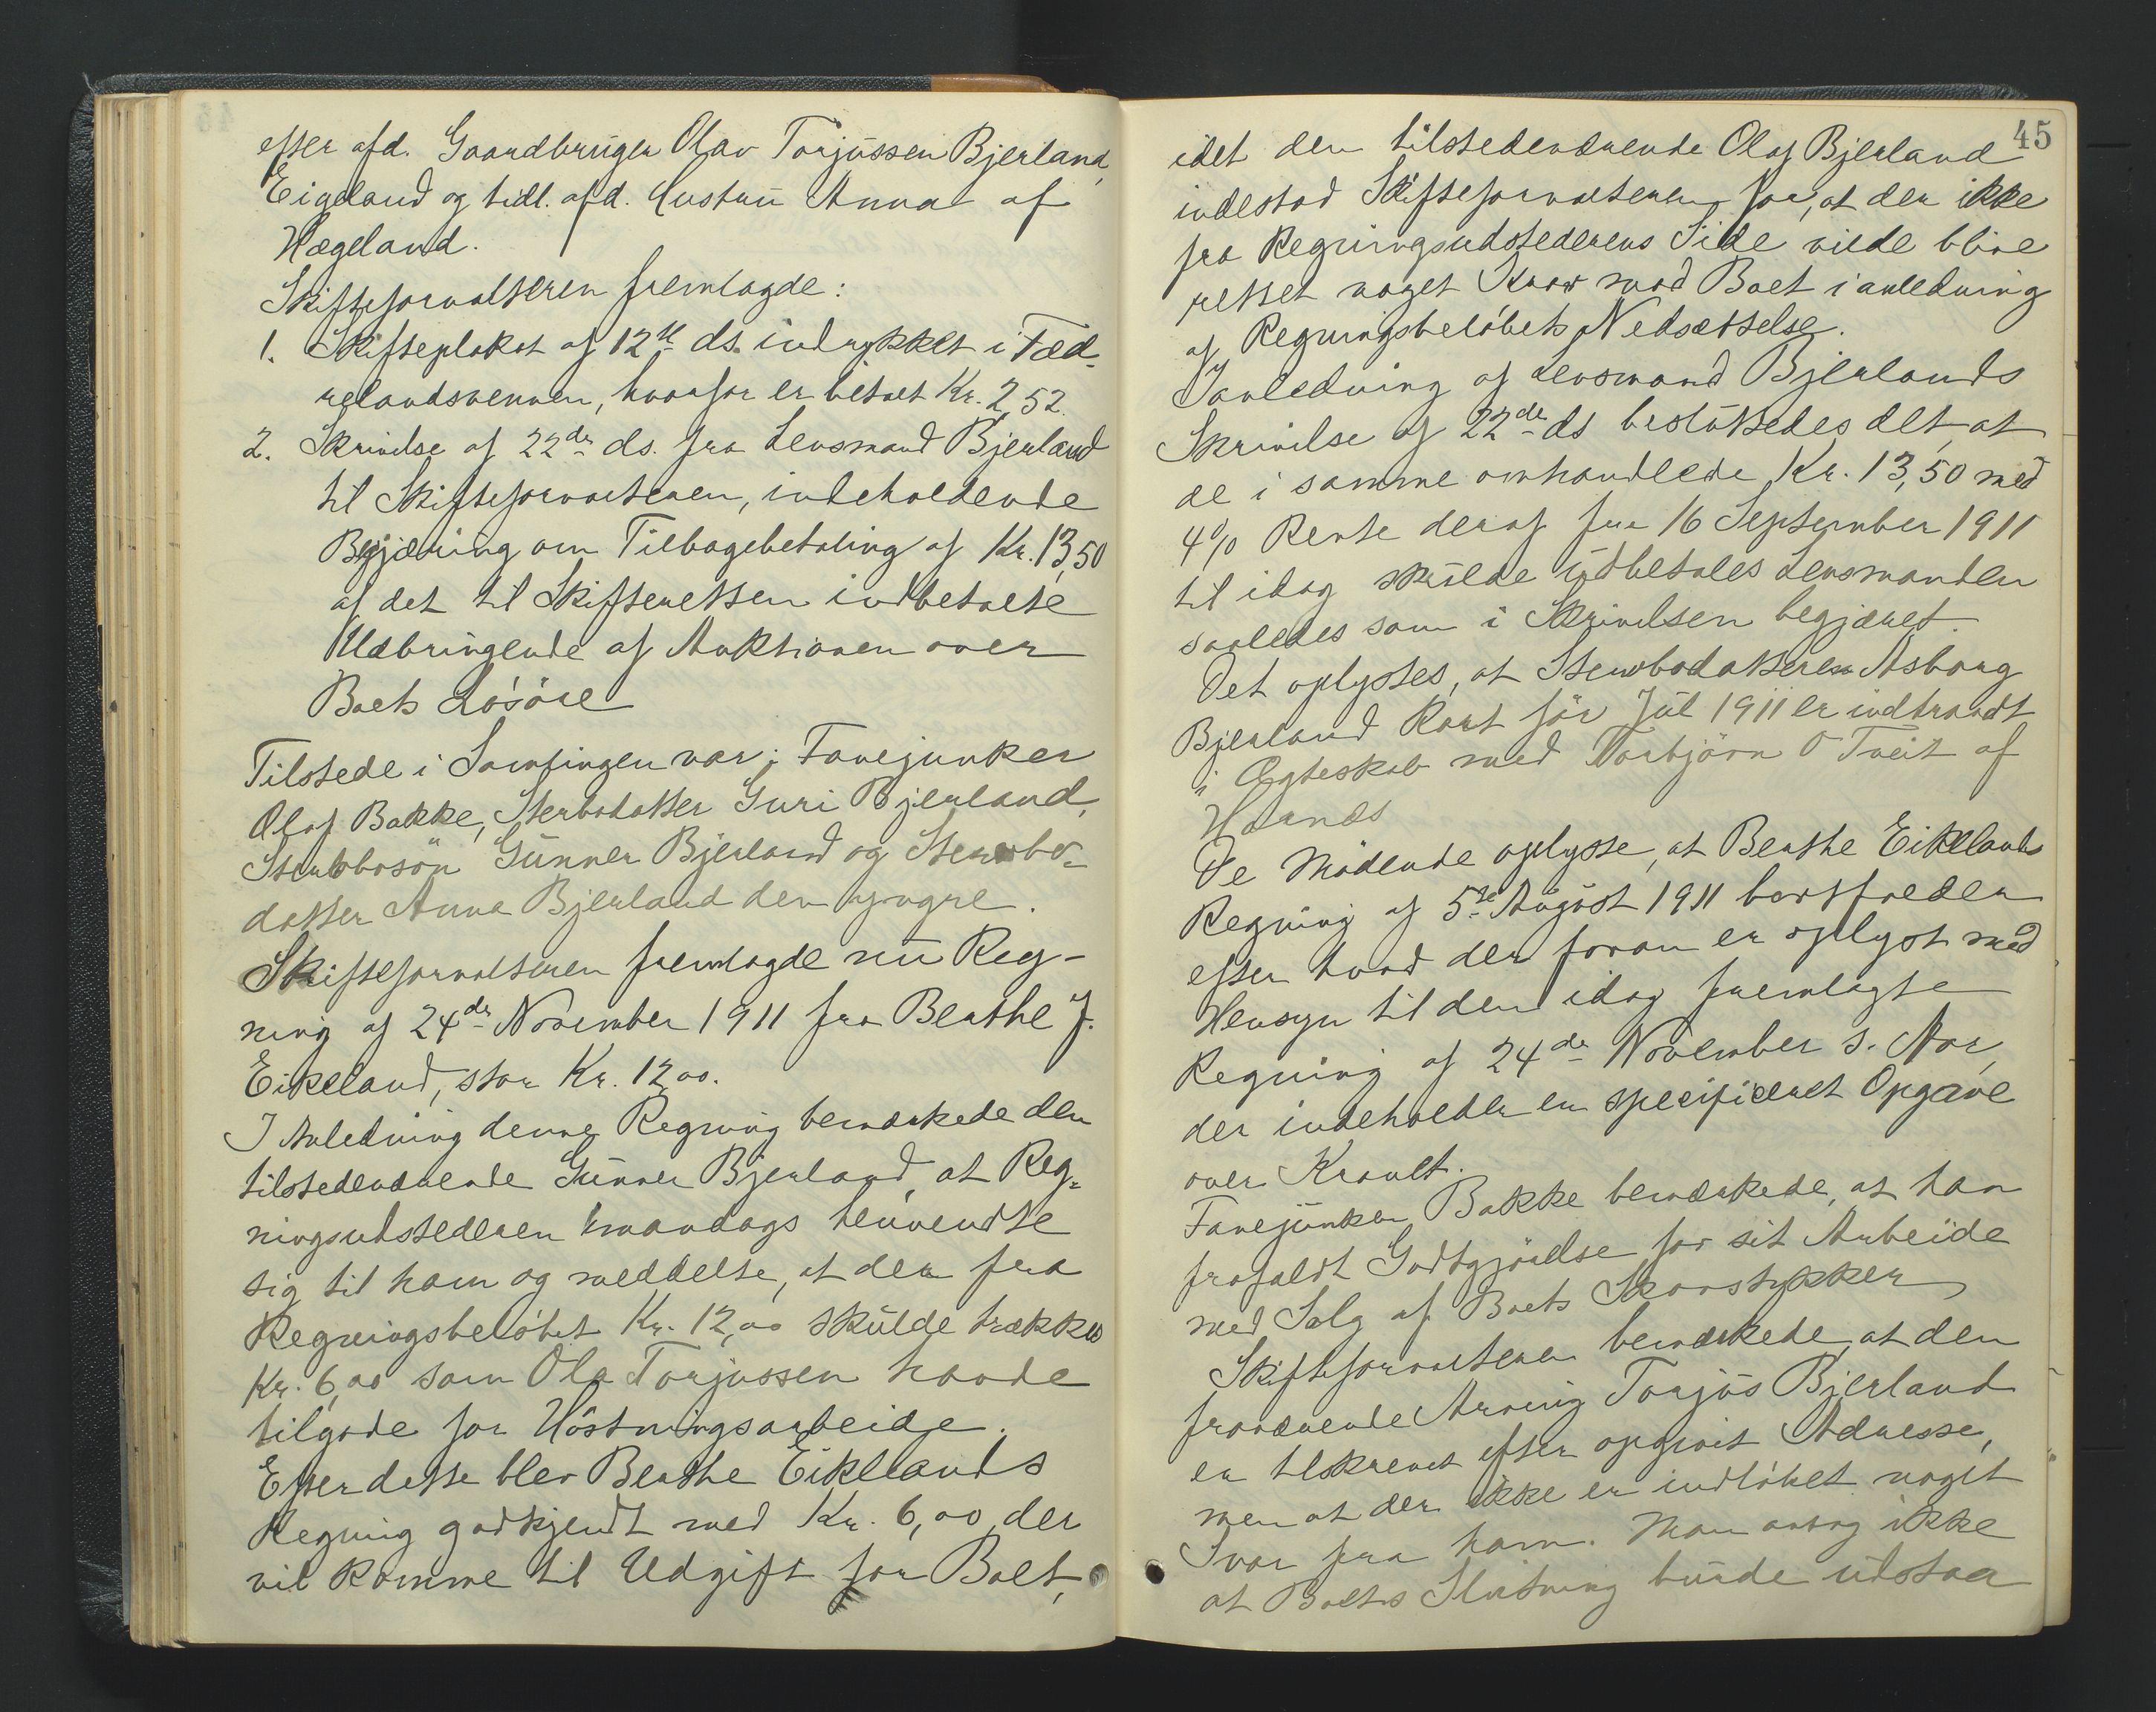 efter afd. Gaardbruger Olav Torjussen Bjerland,
Eigeland og tidl. afd. Hustru Anna af
Hægeland.
Skifteforvalteren fremlagde:
1. Skifteplakat af 12te ds. indrykket i Fæd-
relandsvennen, hvorfor er betalt Kr. 2,52.
2. Skrivelse af 22de ds. fra Lensmand Bjerland
til Skifteforvalteren, indeholdende
Begjæring om Tilbagebetaling af Kr. 13,50
af det til Skifteretten indbetalte
Udbringende af Auktionen over
Boets Løsøre
Tilstede i Samlingen var: Fanejunker
Olaf Bakke, Sterbodatter Guri Bjerland,
Sterbosøn Gunner Bjerland og Sterbo-
datter Anna Bjerland den yngre.
Skifteforvalteren fremlagde nu Reg-
ning af 24de November 1911 fra Berthe J.
Eikeland, stor Kr. 12,00.
I Anledning denne Regning bemærkede den
tilstedeværende Gunner Bjerland, at Reg-
ningsudstederen imandags henvendte
sig til ham og meddelte, at der fra
Regningsbeløbet Kr. 12,00 skulde trækkes
Kr. 6,00 som Ola Torjussen havde
tilgode for Høstningsarbeide.
Efter dette blev Berthe Eikelands
Regning godkjendt med Kr. 6,00, der
vil komme til Udgift for Boet,
45
idet den tilstedeværende Olaf Bjerland
indestod Skifteforvalteren for, at der ikke
fra Regningsudstederens Side vilde blive
rettet noget Krav mod Boet i anledning
af Regningsbeløbets Nedsættelse.
I anledning af Lensmand Bjerlands
Skrivelse af 22de ds besluttedes det, at
de i samme omhandlede Kr. 13,50 med
4% Rente deraf fra 16 September 1911
til idag skulde udbetales Lensmanden
saaledes som i Skrivelsen begjæret.
Det oplystes, at Sterbodatteren Asborg
Bjerland kort før Jul 1911 er indtraadt
i Ægteskab med Torbjørn O Tveit af
De Mødende oplyste, at Berthe Eikelands
Regning af 5te August 1911 bortfalder
efter hvad der foran er oplyst med
Hensyn til den idag fremlagte
Regning af 24de November s. Aar,
der indeholder en specificeret Opgave
over Kravet.
Fanejunker Bakke bemærkede, at han
frafaldt Godtgjørelse for sit Arbeide
med Salg af Boets Skovstykker
Skifteforvalteren bemærkede, at den
fraværende Arving Torjus Bjerland
er tilskrevet efter opgivet Adresse,
men at der ikke er indløbet noget
Svar fra ham. Man antog ikke
at Boets Slutning burde udstaa